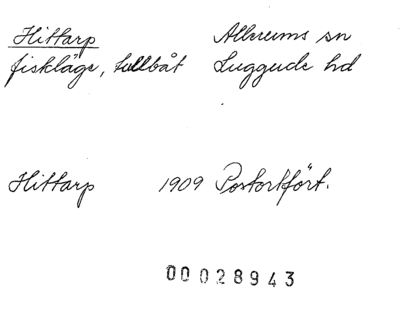 Hittarp Allerums sn
fiskläge, tullbåt Luggude hd
Hittarp 1909 Postortfört.
00028943